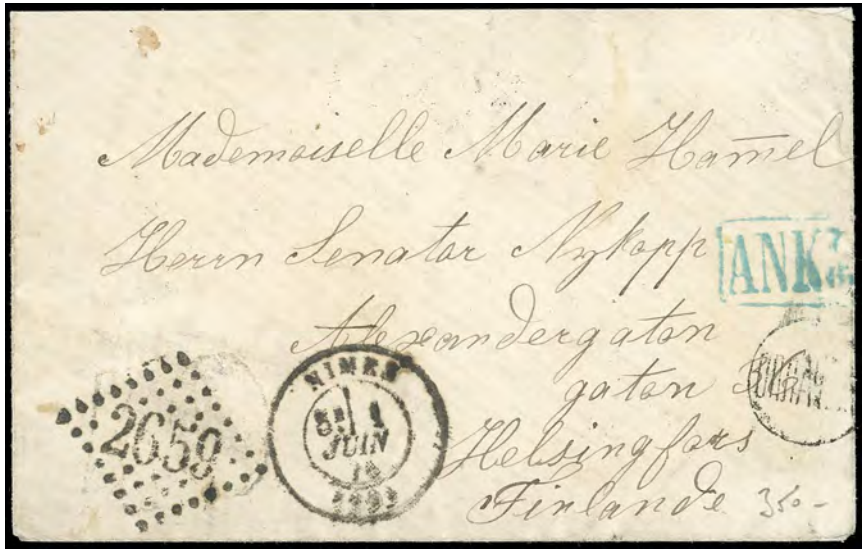 Mademoiselle Marie Ham̅el
Herrn Senator Nykopp
ANK
Alexandergatan
gatan
Helsingfors
Finlande
350-
2659
NIMES
1
JUIN